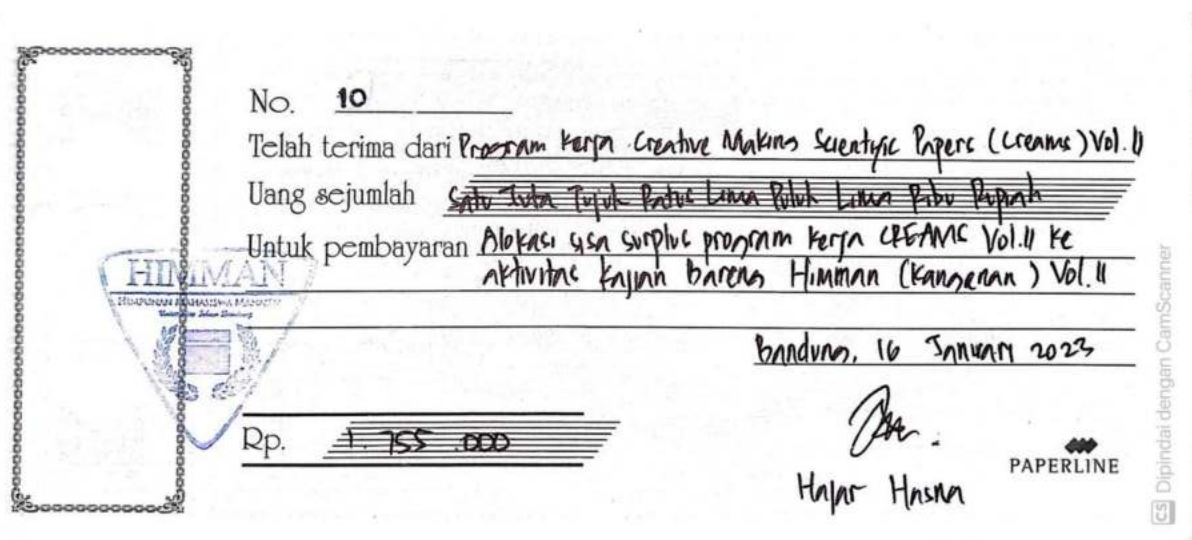 No. 10
Telah terima dari Program Kerja Creative Making Scientific Papers (Creams) Vol. II
Uang sejumlah Satu Juta Tujuh Ratus Lima Puluh Lima Ribu Rupiah
Untuk pembayaran Alokasi sisa surplus program kerja CREAMS Vol. II ke
aktivitas Kajian Bareng Himman (Kangenan) Vol. II
HIMMAN
HIMPUNAN MAHASISWA MANAJEMEN
Bandung, 16 Januari 2023
Rp. 1.755.000
PAPERLINE
Hajar Hasna
CS Dipindai dengan CamScanner